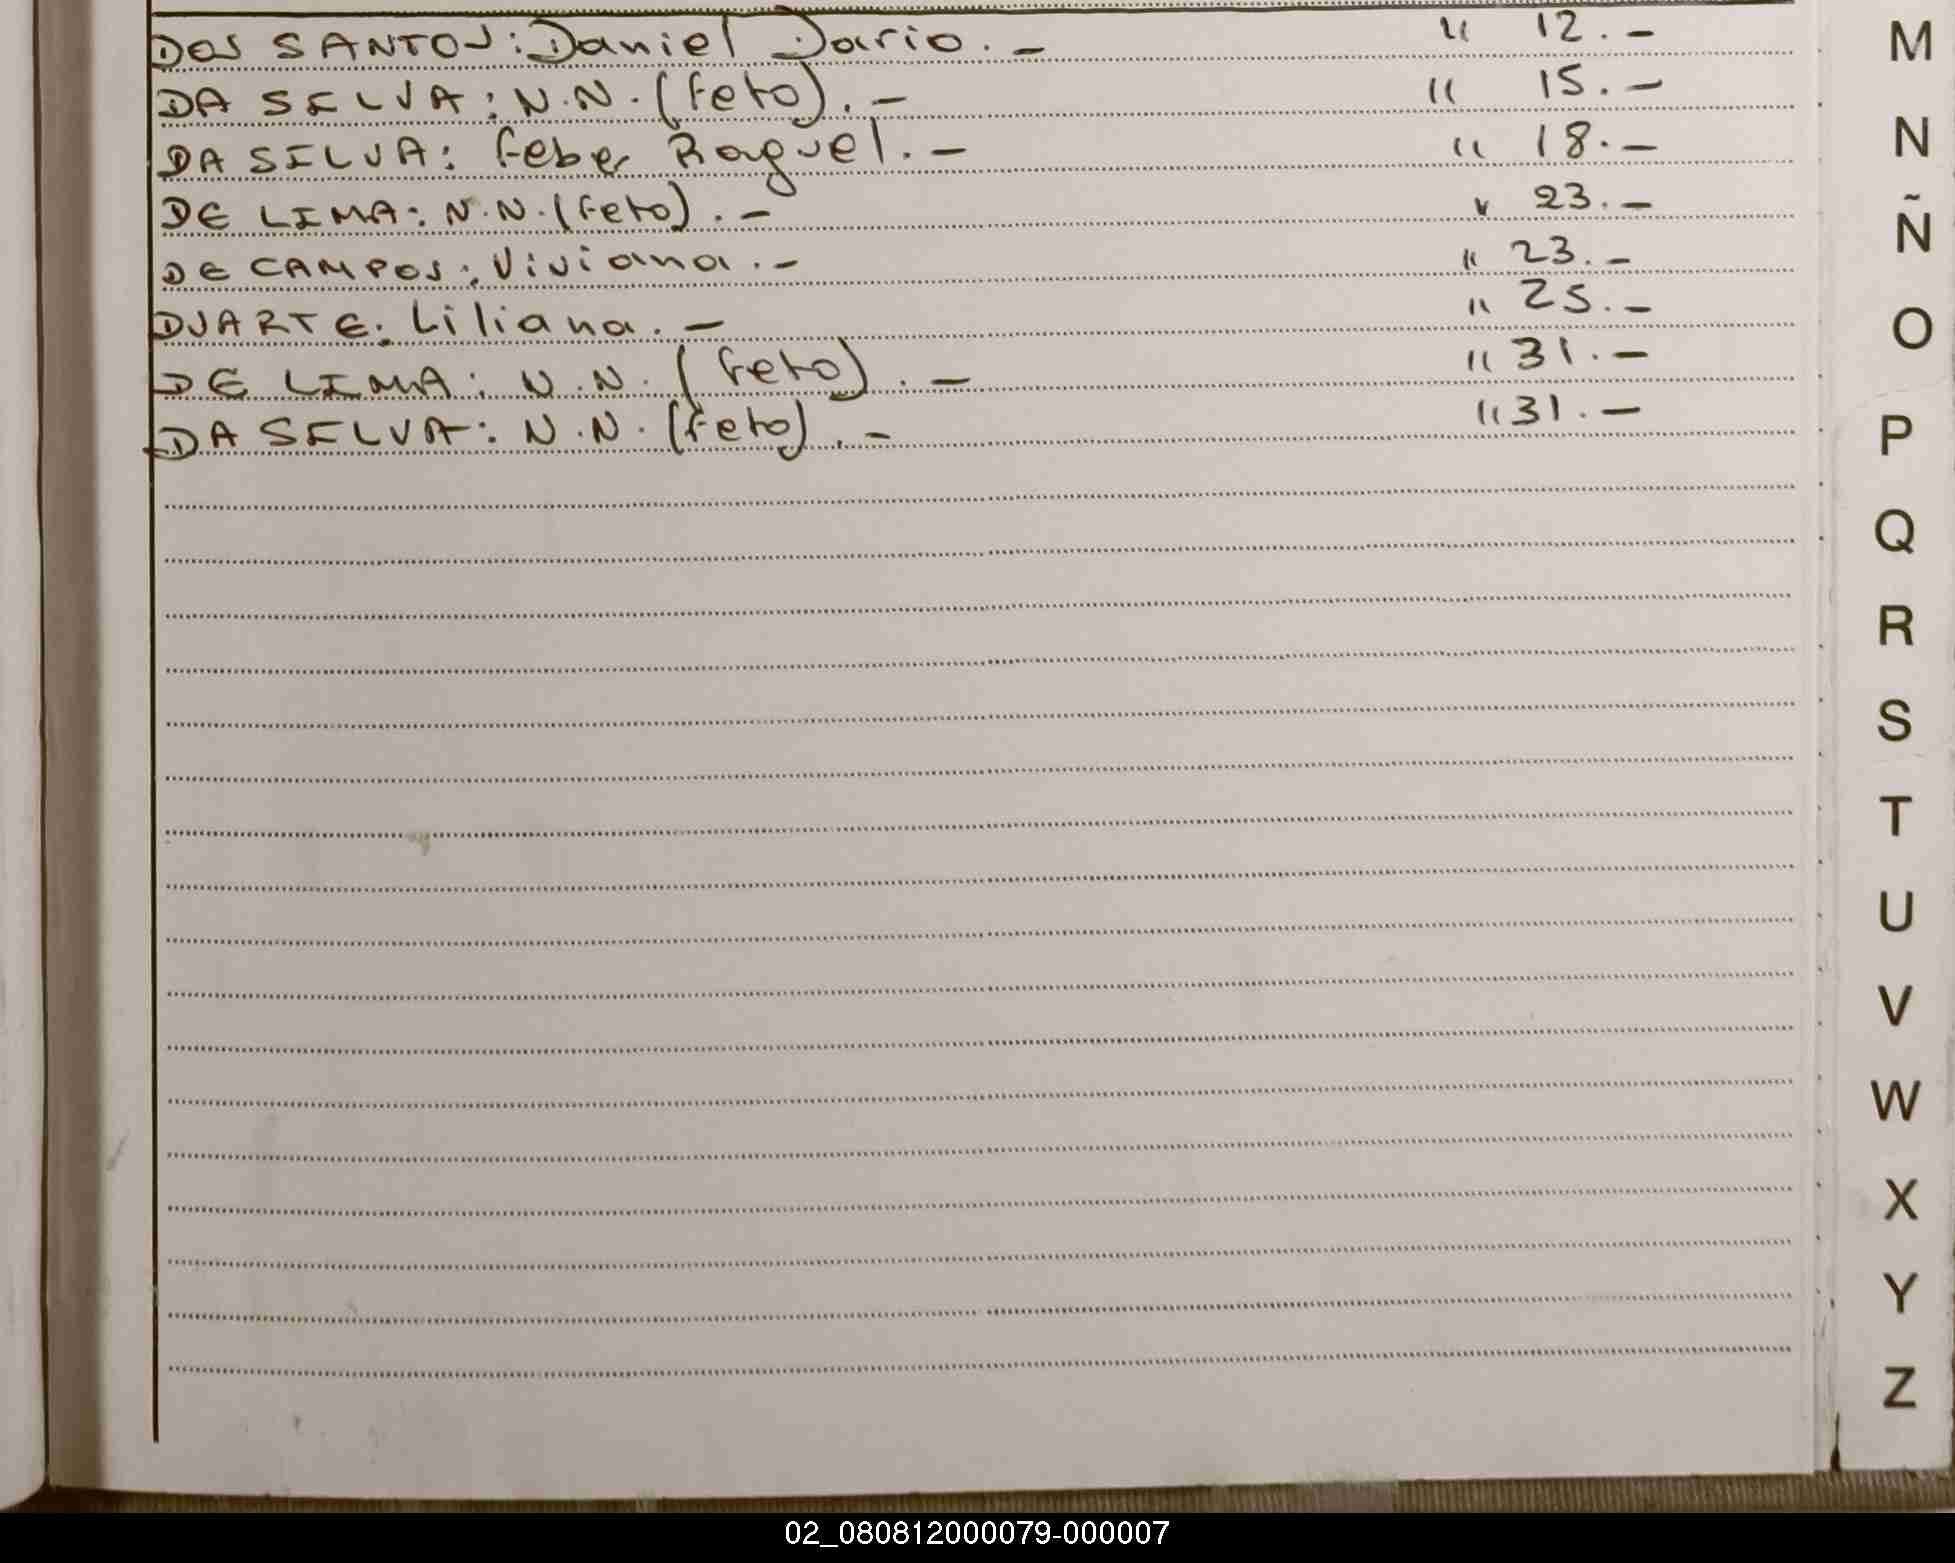 DOS SANTOS: Daniel Dario. — " 12. —
DA SILVA: N.N. (feto). — " 15. —
DA SILVA: feber Raquel. — " 18. —
DE LIMA: N.N. (feto). — " 23. —
DE CAMPOS: Viviana. — " 23. —
DUARTE: Liliana. — " 25. —
DE LIMA: N.N. (feto). — " 31. —
DA SILVA: N.N. (feto). — " 31. —
M
N
Ñ
O
P
Q
R
S
T
U
V
W
X
Y
Z
02_080812000079-000007